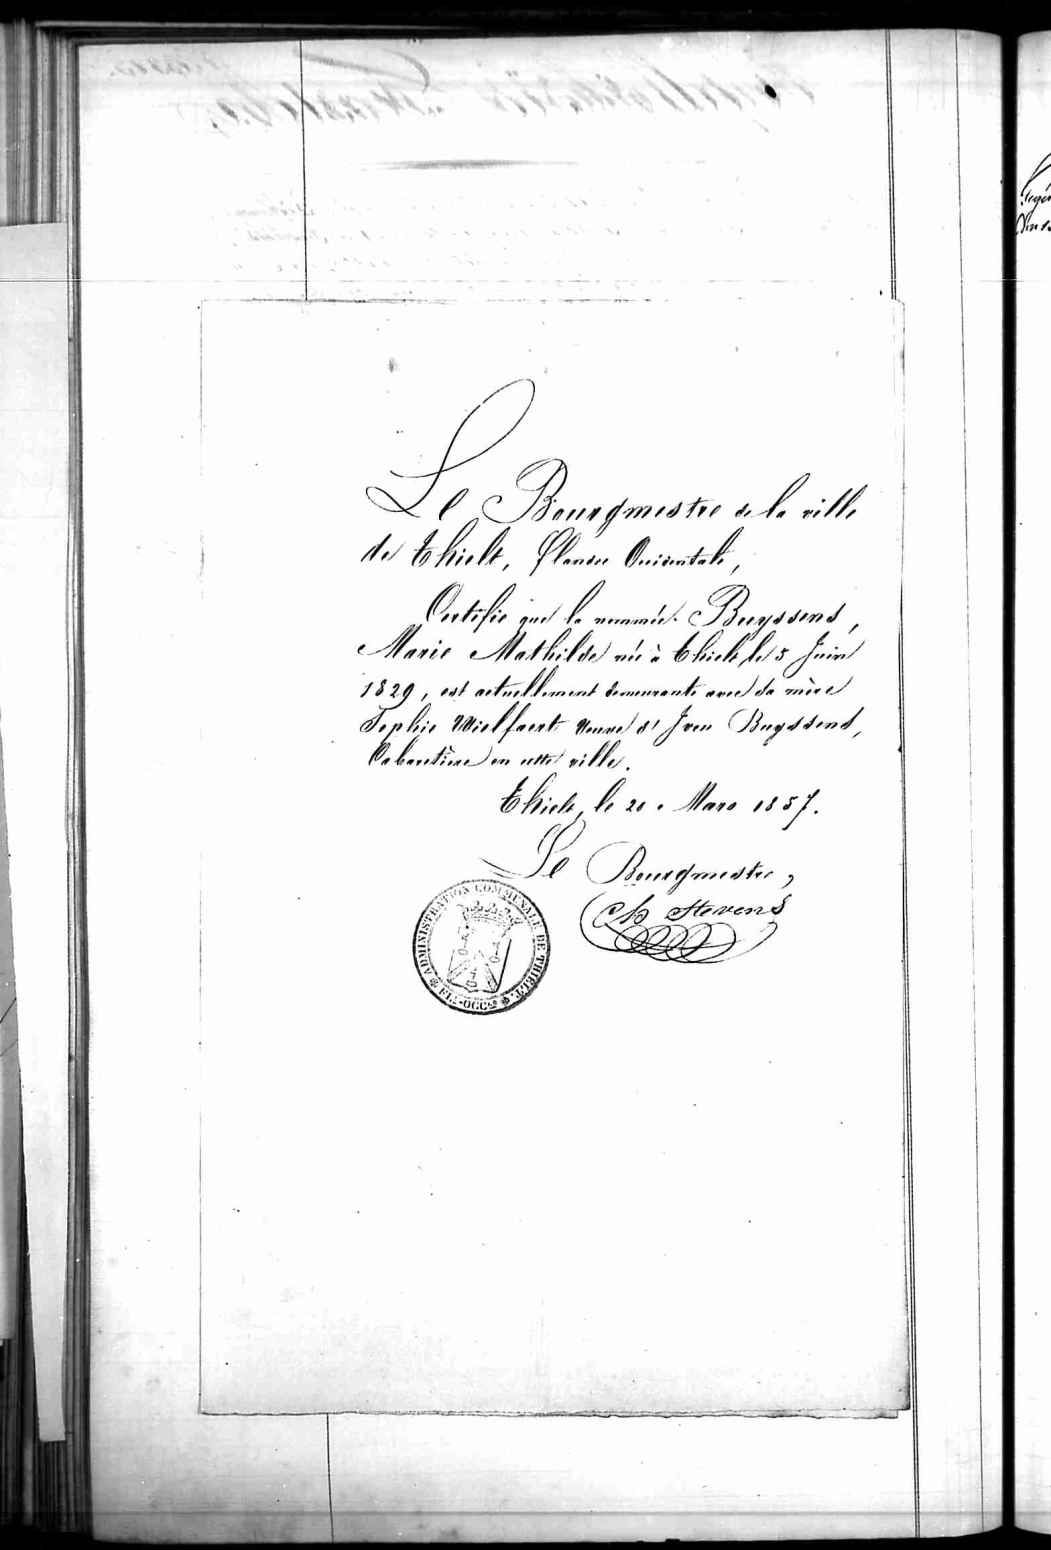 Le Bourgmestre de la ville
de Thielt, Flandre Occidentale,
Certifie que la nommée Buyssens,
Marie Mathilde née à Thielt, le 5 Juin
1829, est actuellement demeurante avec sa mère
Sophie Wielfaert Veuve d' Yven Buyssens,
Cabaretière en cette ville.
Thielt, le 20 Mars 1857.
Le Bourgmestre,
Ch Stevens
ADMINISTRATION COMMUNALE DE THIELT
FL: OCC